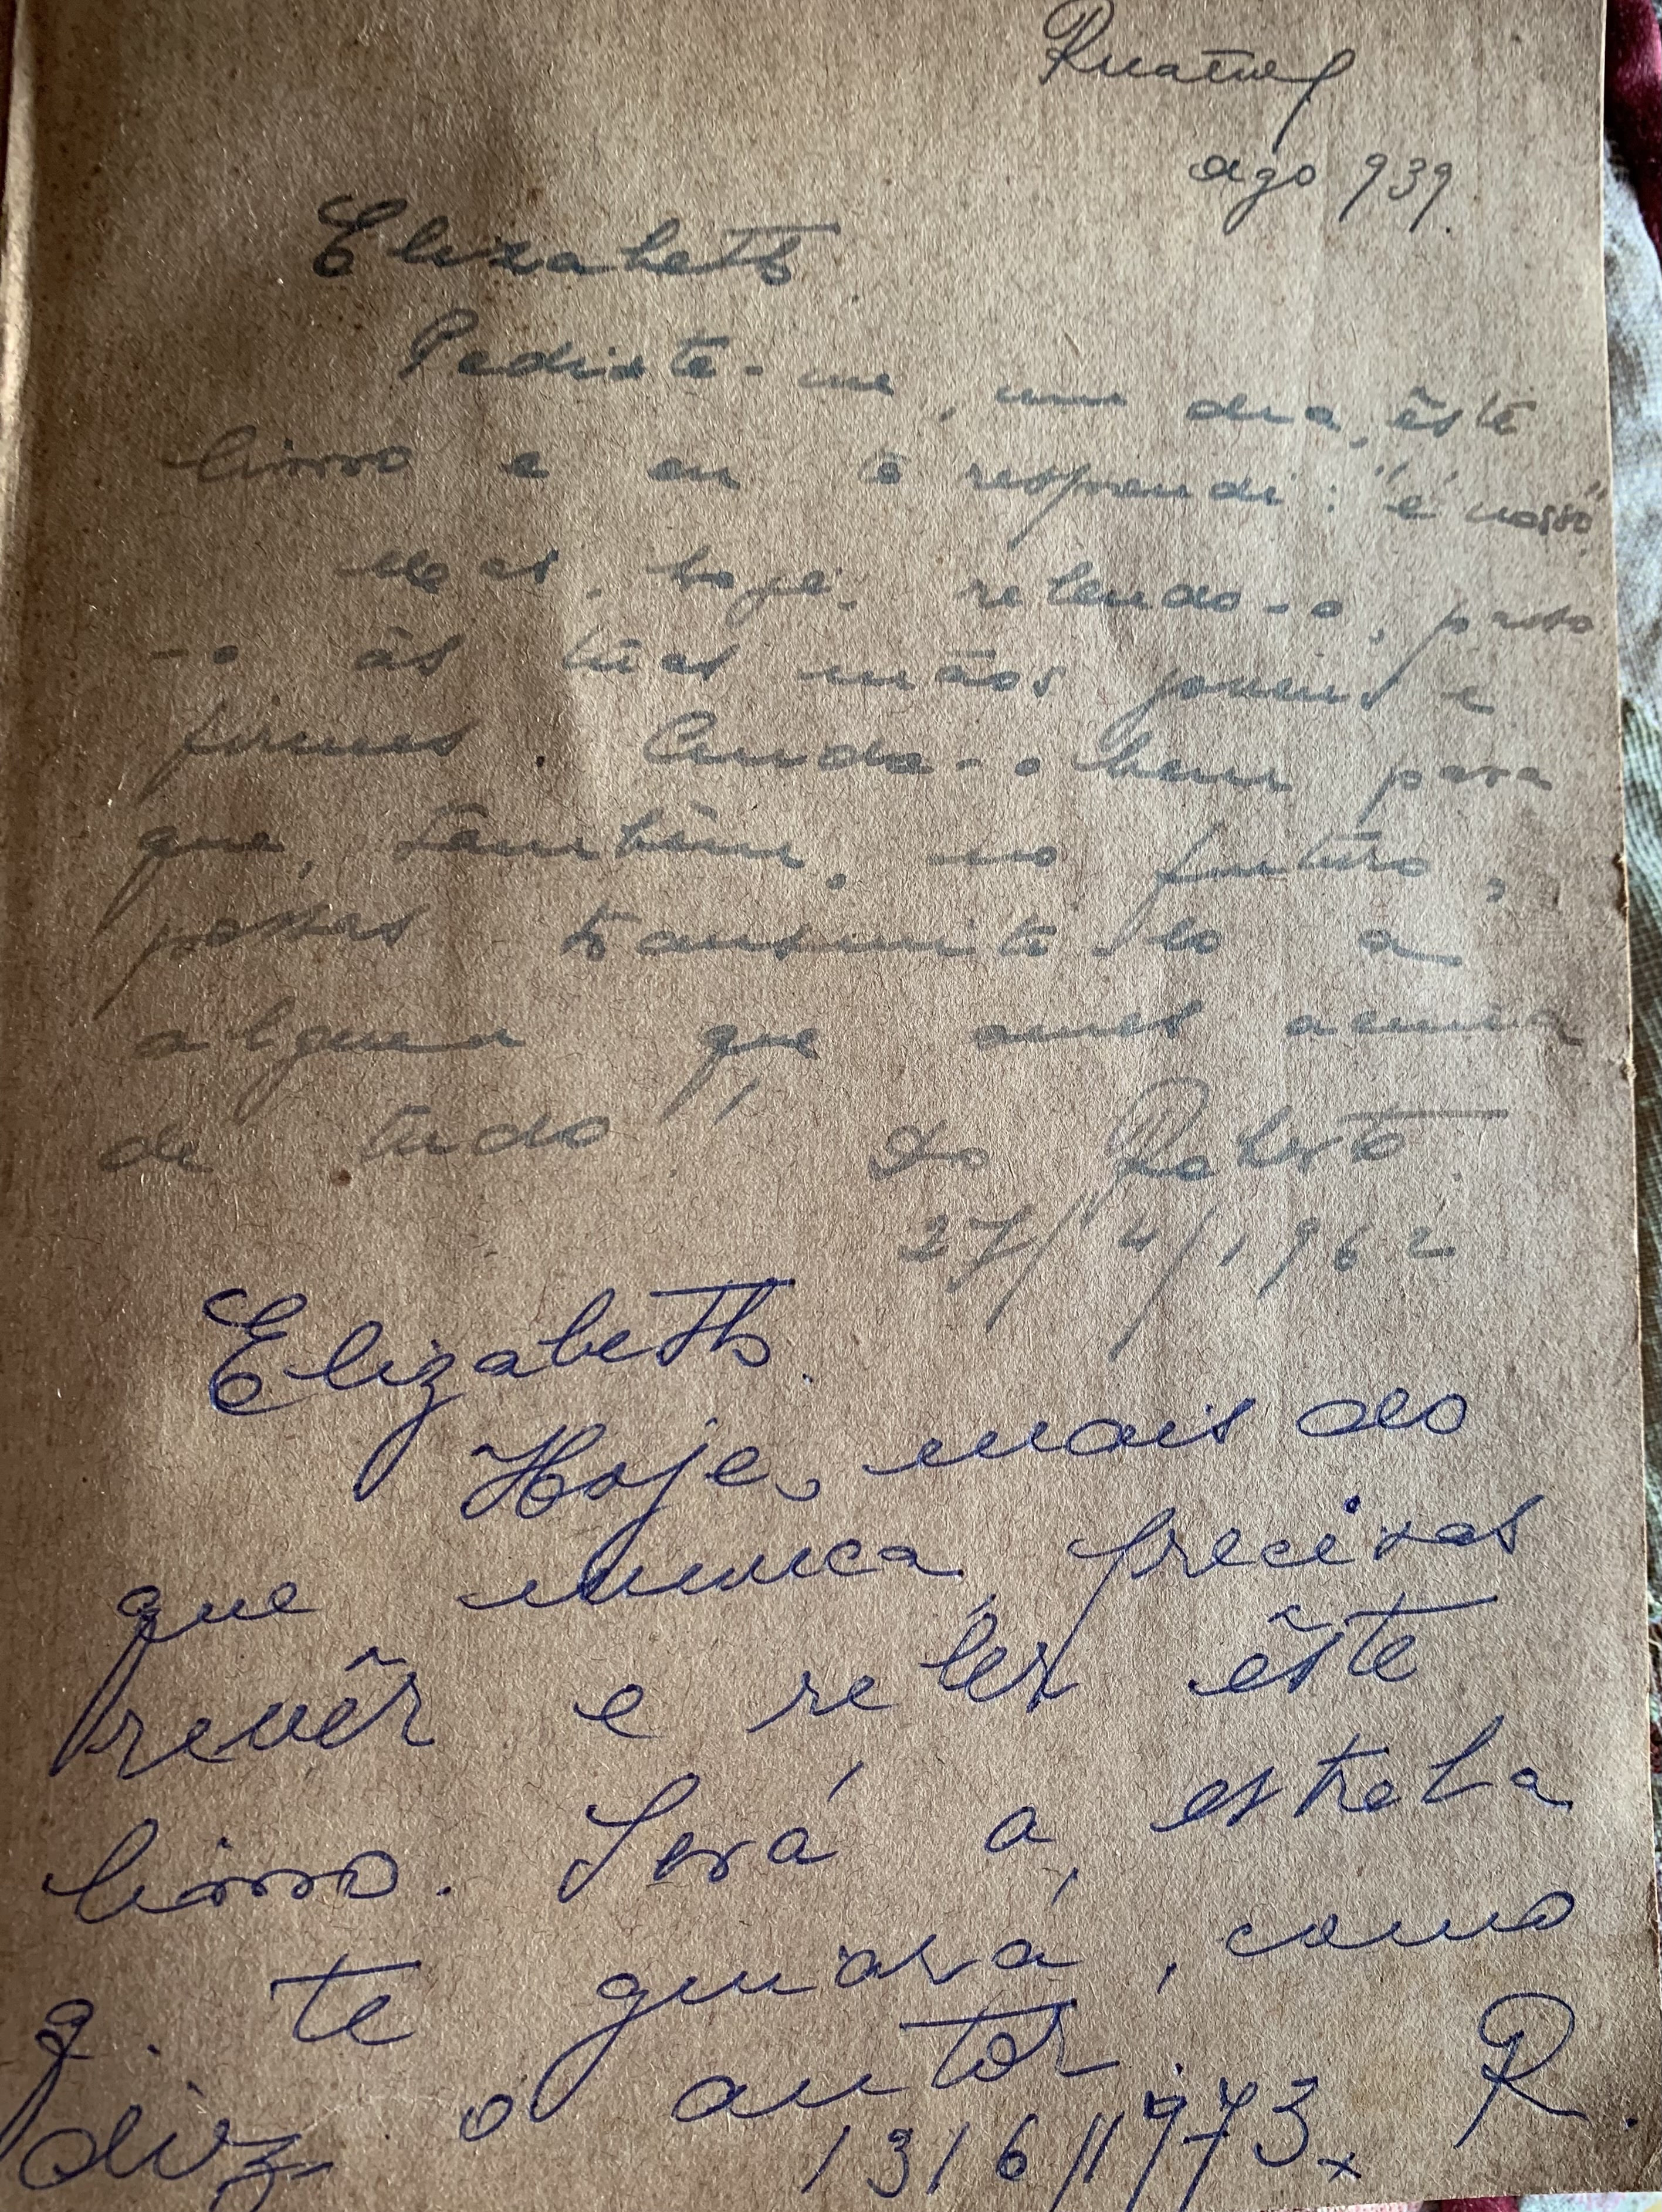 ago 939.
Elizabeth
Pediste-me, um dia, êste
livro e eu te respondi: "é nosso"
Mas, hoje, relendo-o, passo
-o às tuas mãos jovens e
firmes. Cuida-o bem para
que, também, no futuro,
possas transmiti-lo a
alguem que ames acima
de tudo! Do Roberto.
27/4/1962
Elizabeth.
Hoje, mais do
que nunca, precisas
revêr e reler êste
livro. Será a, estrela
q. te guiará, como
diz o autor. R.
13/6/1973.